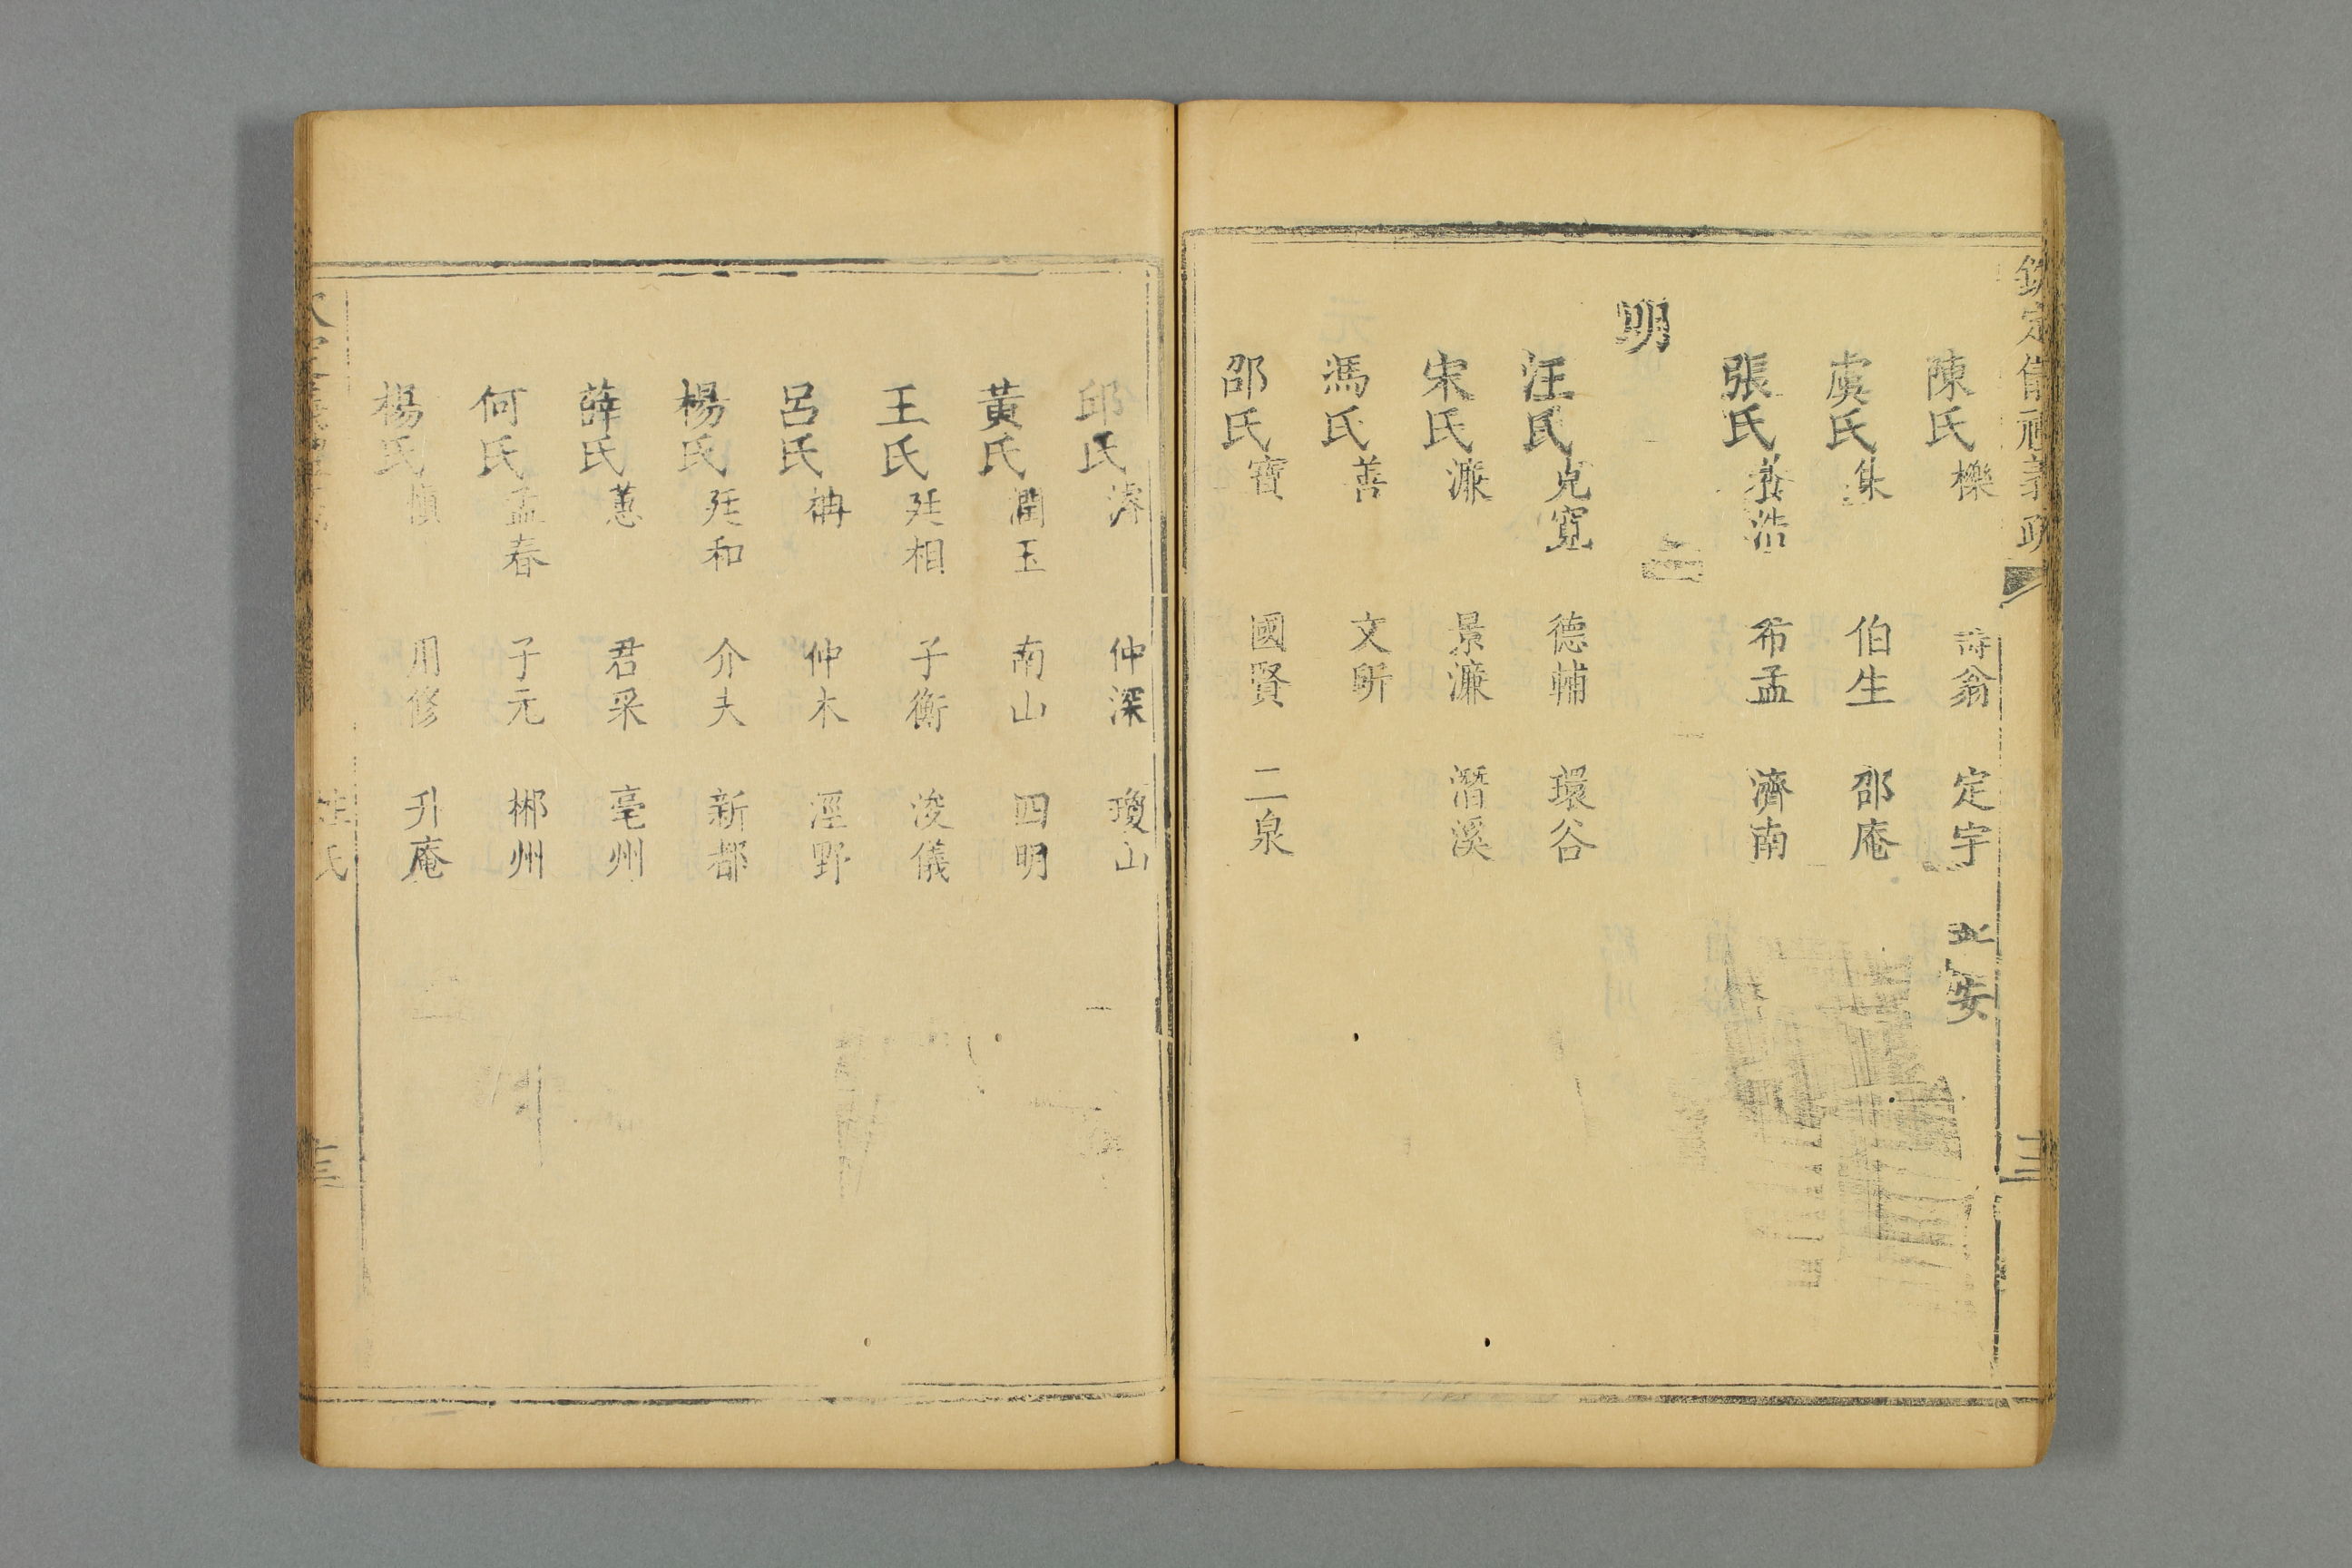 陳氏 櫟 壽翁 定宇
虞氏 集 伯生 邵庵
張氏 養浩 希孟 濟南
明
汪氏 克寬 德輔 環谷
宋氏 濂 景濂 潛溪
馮氏 善 文所
邵氏 寶 國賢 二泉
邱氏 濬 仲深 瓊山
黃氏 潤玉 南山 四明
王氏 廷相 子衡 浚儀
呂氏 柟 仲木 涇野
楊氏 廷和 介夫 新都
薛氏 蕙 君采 亳州
何氏 孟春 子元 郴州
楊氏 慎 用修 升庵
姓氏